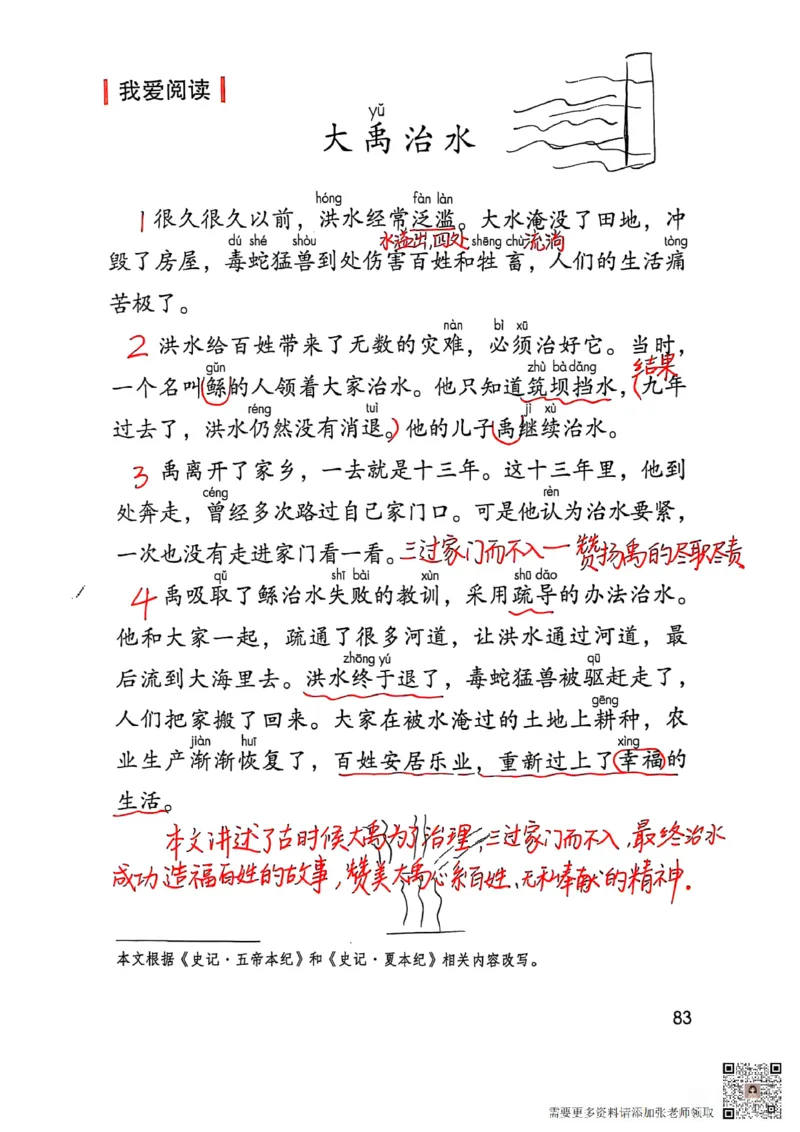 我爱阅读
yǔ
大禹治水
hóng fàn làn
1 很久很久以前，洪水经常泛滥。大水淹没了田地，冲
dú shé shòu 水溢出，四处流淌 shēng chù tòng
毁了房屋，毒蛇猛兽到处伤害百姓和牲畜，人们的生活痛
苦极了。
nàn bì xū
2 洪水给百姓带来了无数的灾难，必须治好它。当时，
gǔn zhù bà dǎng 结果
一个名叫鲧的人领着大家治水。他只知道筑坝挡水，（九年
réng tuì jì xù
过去了，洪水仍然没有消退。）他的儿子禹继续治水。
3 禹离开了家乡，一去就是十三年。这十三年里，他到
céng rèn
处奔走，曾经多次路过自己家门口。可是他认为治水要紧，
一次也没有走进家门看一看。三过家门而不入一赞扬禹的尽职尽责
qǔ shī bài xùn shū dǎo
4 禹吸取了鲧治水失败的教训，采用疏导的办法治水。
他和大家一起，疏通了很多河道，让洪水通过河道，最
zhōng yú qū
后流到大海里去。洪水终于退了，毒蛇猛兽被驱赶走了，
gēng
人们把家搬了回来。大家在被水淹过的土地上耕种，农
jiàn huī xìng
业生产渐渐恢复了，百姓安居乐业，重新过上了幸福的
生活。
本文讲述了古时候大禹为了治理，三过家门而不入，最终治水
成功造福百姓的故事，赞美大禹心系百姓、无私奉献的精神.
本文根据《史记·五帝本纪》和《史记·夏本纪》相关内容改写。
83
需要更多资料请添加张老师领取